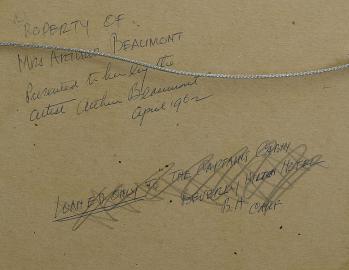 PROPERTY OF
MRS ARTHUR BEAUMONT
Presented to her by the
artist Arthur Beaumont
April 1962
LOANED ONLY TO THE CAPTAINS CABIN
BEVERLY HILTON HOTEL
B.H. CALIF